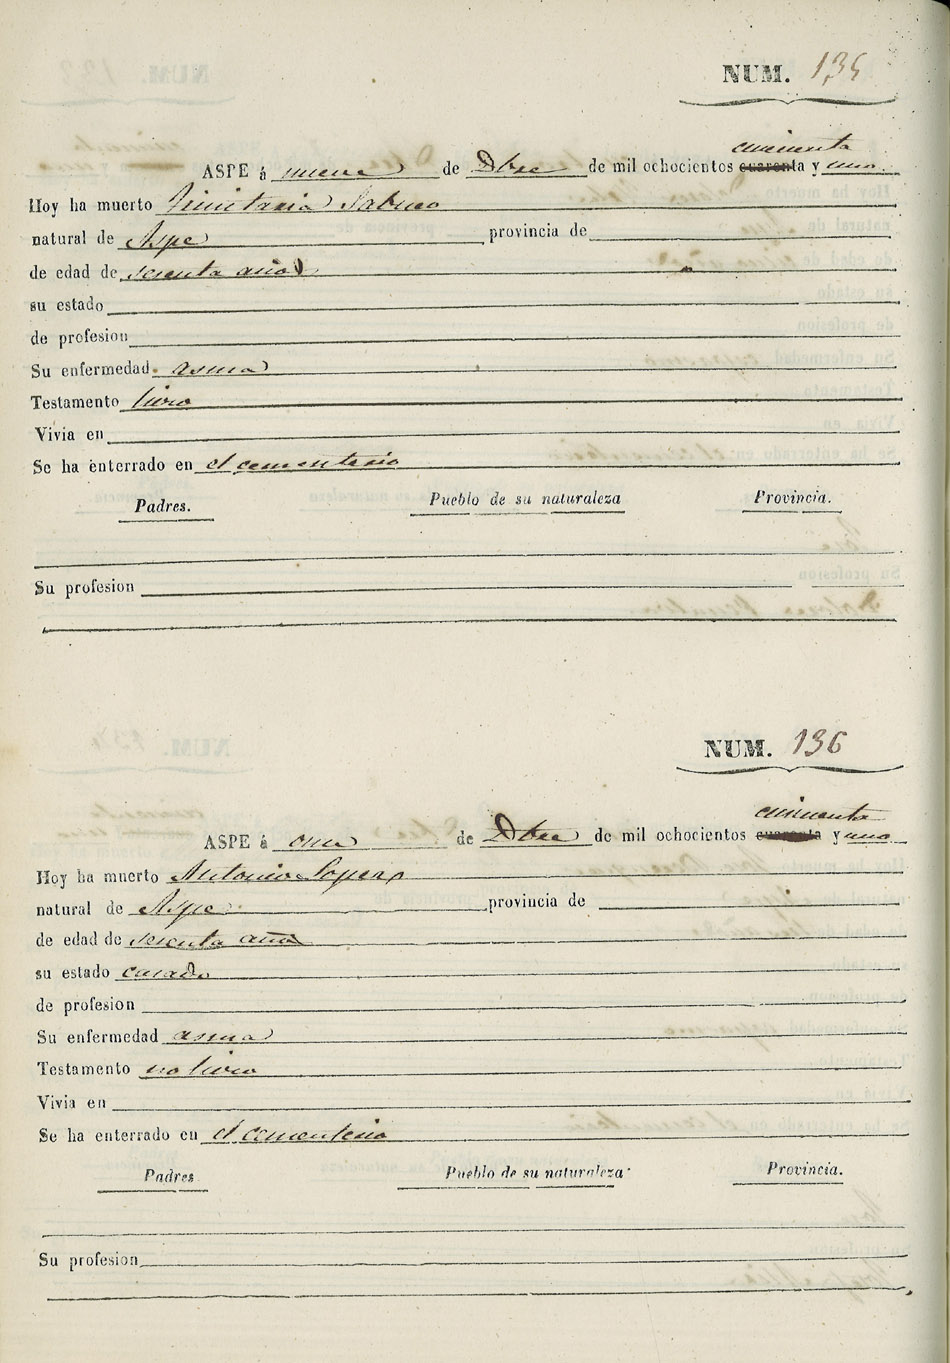 NUM. 135
cincuenta
ASPE á nueve de Dbre de mil ochocientos cuarenta y uno.
Hoy ha muerto Trinitaria Sabuco
natural de Aspe provincia de
de edad de sesenta años
su estado
de profesion
Su enfermedad. asma
Testamento hizo
Vivia en
Se ha enterrado en el cementerio
Padres. Pueblo de su naturaleza Provincia.
Su profesion
NUM. 136
cincuenta
ASPE á once de Dbre de mil ochocientos cuarenta y uno
Hoy ha muerto Antonio Lopez
natural de Aspe provincia de
de edad de sesenta años
su estado casado
de profesion
Su enfermedad asma
Testamento no hizo
Vivia en
Se ha enterrado en el cementerio
Padres Pueblo de su naturaleza Provincia.
Su profesion